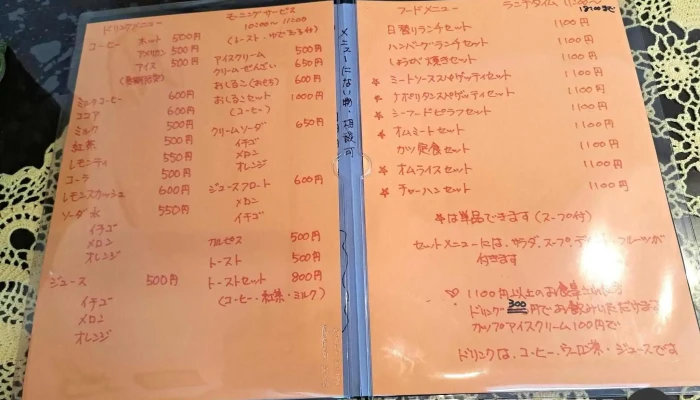 ドリンクメニュー
コーヒー ホット 500円
アメリカン 500円
アイス 500円
ミルクコーヒー 600円
ココア 600円
ミルク 500円
紅茶 500円
レモンティ 550円
コーラ 500円
レモンスカッシュ 600円
ソーダ水 550円
イチゴ
メロン
オレンジ
ジュース 500円
イチゴ
メロン
オレンジ
モーニングサービス
10:00〜11:00
(トースト・ゆでたまご付)
アイスクリーム 500円
クリームぜんざい 650円
おしるこ(おもち) 600円
おしるこセット 1000円
(コーヒー)
クリームソーダ 650円
イチゴ
メロン
オレンジ
ジュースフロート 600円
メロン
イチゴ
カルピス 500円
トースト 500円
トーストセット 800円
(コーヒー・紅茶・ミルク)
メニューにない物・相談可
フードメニュー
ランチタイム 11:00〜
まで
日替りランチセット 1100円
ハンバーグランチセット 1100円
しょうが焼きセット 1100円
☆ ミートソーススパゲッティセット 1100円
☆ ナポリタンスパゲッティセット 1100円
☆ シーフードピラフセット 1100円
☆ オムミートセット 1100円
カツ定食セット 1100円
☆ オムライスセット 1100円
☆ チャーハンセット 1100円
☆は単品できます(スープ付)
セットメニューには、サラダ、スープ、フルーツが
付きます
♡ 1100円以上のお食事
ドリンク300円でお飲みいただけます
カップアイスクリーム100円で
ドリンクは、コーヒー、ウーロン茶・ジュースです